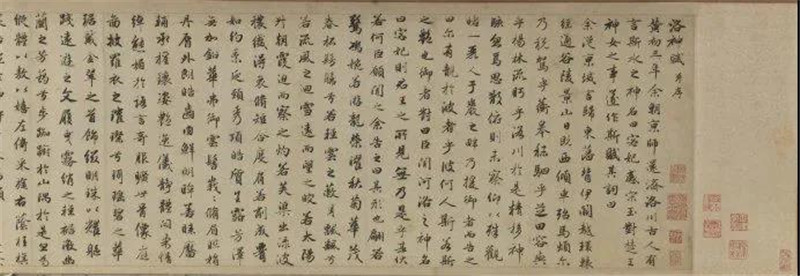 洛神賦 并序
黃初三年余朝京師還濟洛川古人有
言斯水之神名曰宓妃感宋玉對楚王
神女之事遂作斯賦其詞曰
余從京域言歸東藩背伊闕越轘轅
經通谷陵景山日既西傾車殆馬煩尒
乃稅駕乎蘅皋秣駟乎芝田容與
乎楊林流眄乎洛川於是精移神
駭忽焉思散俯則未察仰以殊觀
睹一麗人于巖之畔乃援御者而告之
曰尒有覿於彼者乎彼何人斯若斯
之豔也御者對曰臣聞河洛之神名
曰宓妃則君王之所見無乃是乎其狀
若何臣願聞之余告之曰其形也翩若
驚鴻婉若游龍榮曜秋菊華茂
春松髣髴兮若輕雲之蔽月飄飄兮
若流風之迴雪遠而望之皎若太陽
升朝霞迫而察之灼若芙蕖出淥波
穠纖得衷脩短合度肩若削成腰
如約素延頸秀項皓質呈露芳澤
無加鉛華弗御雲髻峩峩脩眉聯娟
丹脣外朗皓齒內鮮明眸善睞靨
輔承權瓌姿豔逸儀靜體閑柔情
綽態媚於語言奇服曠世骨像應
圖披羅衣之璀璨兮珥瑤碧之華
琚戴金翠之首飾綴明珠以耀軀
踐遠遊之文履曳霧綃之輕裾微幽
蘭之芳藹兮步踟躕於山隅於是忽焉
縱體以遨以嬉左倚采旄右蔭桂旗